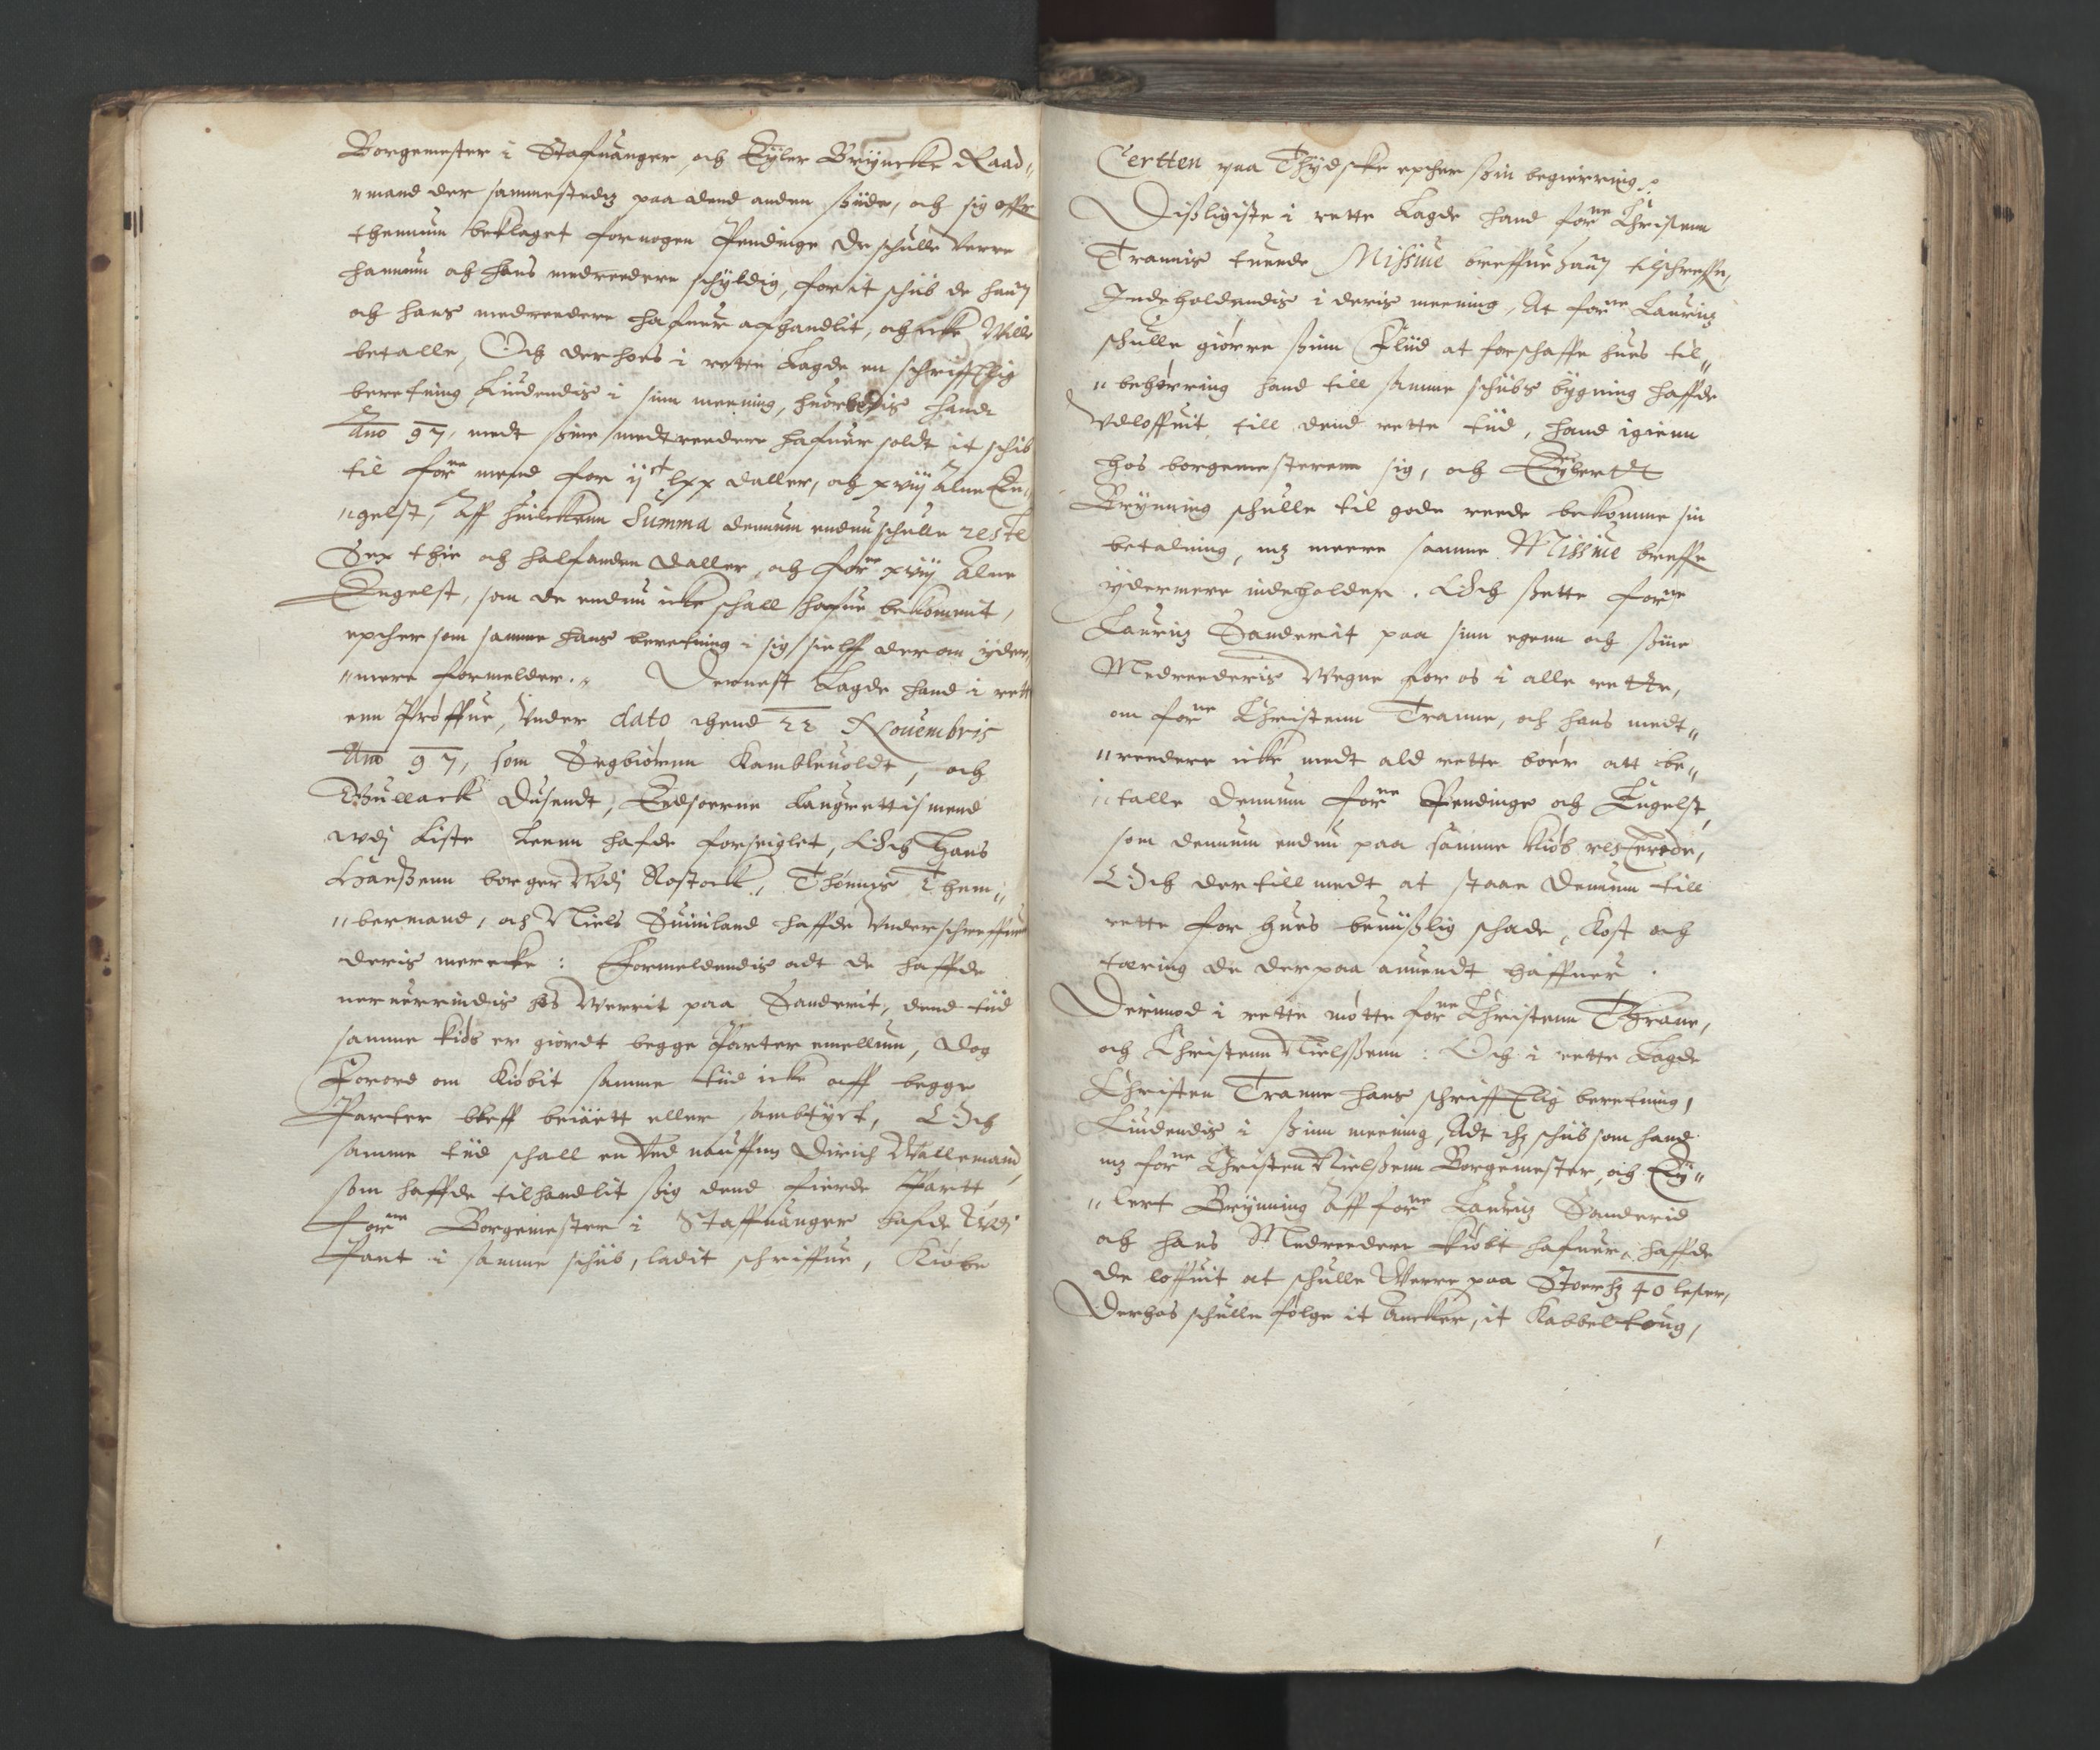 Borgemester i Stafuanger, och Eyler Bryncke Raad„
„mand der sammestedz paa dend anden ßiide, och sig offr
thennum beklaget for nogen Pendinge de schulle Verre
hannum och hans medreedere schyldig, for it schib de hanom
och hans medreedere hafuer afhandlit, och icke Wille
betalle, Och der hoes i rette Lagde en schrifftlig
beretning Liudendis i sinn meening, huorledis hand
Ano 97, medt ßine medtreedere hafuer soldt it schib
til forne mend for ijct lxx daller, och xviij Alne En„
„gelst, Aff huilckenn Summa dennum endnu schulle reste
Sex thie och halfanden daller, och forne xviij Alne
Engelst, som de endnu icke schall hafue bekommit,
epther som samme hans beretning i sig sielff derom yder„
„mere formelder. Dernest Lagde hand i rette
enn Prøffue, Vnder dato thend 22 Nouembris
Ano 97, som Segbiørnn Kambleuoldt, och
Gullack Dusendt, Eedsorne Laugrettismend
wdj Liste Leenn hafde forseiglet, Och Hans
Hanßenn borger Wdj Rostock, Thønnis Them„
„bermand, och Niels Suiniland haffde Vnderschreffuit
deris mercke: Formeldendis adt de haffde
neruerrindis hos Werrit paa Sanderit, dend tiid
samme kiøb er giordt begge Parter emellum, dog
Forord om Kiøbit samme tiid icke aff begge
Parter bleff beiaett eller sambtyct, Och
samme tiid schall en Ved nauffn Dirich Wallemand,
som haffde tilhandlit ßig dend fierde Partt
forne Borgemester i Staffuanger hafde Wdi
Part i samme schib, ladit schriffue, Kiøbe
Certten paa Thydske epther ßin begierring.
Dißligiste i rette Lagde hand forne Christenn
Trannis tuende Missiue breffue hanom tilschreffn,
Indeholdendis i deris meening, At forne Lauritz
schulle giørre ßinn Fliid at forschaffe hues til„
„behørring hand till samme schibs bygning haffde
Vdloffuit till dend rette tiid, hand igienn
hos borgemesterenn sig, och Eylertt
Brynning schulle til gode reede bekomme sin
betalning, mz meere samme Missiue breffe
ydermere indeholder. Och ßette forne
Lauritz Sanderit paa sinn egenn och ßine
Medreederis Wegne for os i alle rette,
om forne Christenn Tranne, och hans medt„
„reedere icke medt ald rette boer att be„
„talle dennum forne Pendinge och Engelst,
som dennum endnu paa samme Kiøb resterede,
Och der till medt at staae dennum till
rette for hues beuißlig schade, Kost och
tæring de der paa anuendt haffuer.
Derimod i rette møtte forne Christenn Thrane,
och Christenn Nielßenn: Och i rette Lagde
Christen Tranne hans schrifftlig beretning,
Liudendis i ßinn meening, Adt thz schib som hand
mz forne Christen Nielßenn Borgemester, och Ey„
„lert Brynning Aff forne Lauritz Sanderid
och hans Medreedere kiøbt hafuer, haffde
de loffuit at schulle Werre paa Stoerhz 40 lester,
Derhos schulle følge it Ancker, it Kabbeltoug,